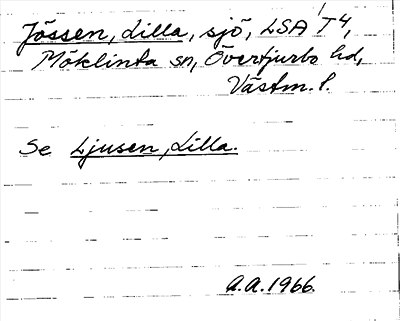 Jössen, Lilla, sjö, LSA T4,
Möklinta sn, Övertjurbo hd,
Västm. l.
Se Ljusen, Lilla.
A.A. 1966.